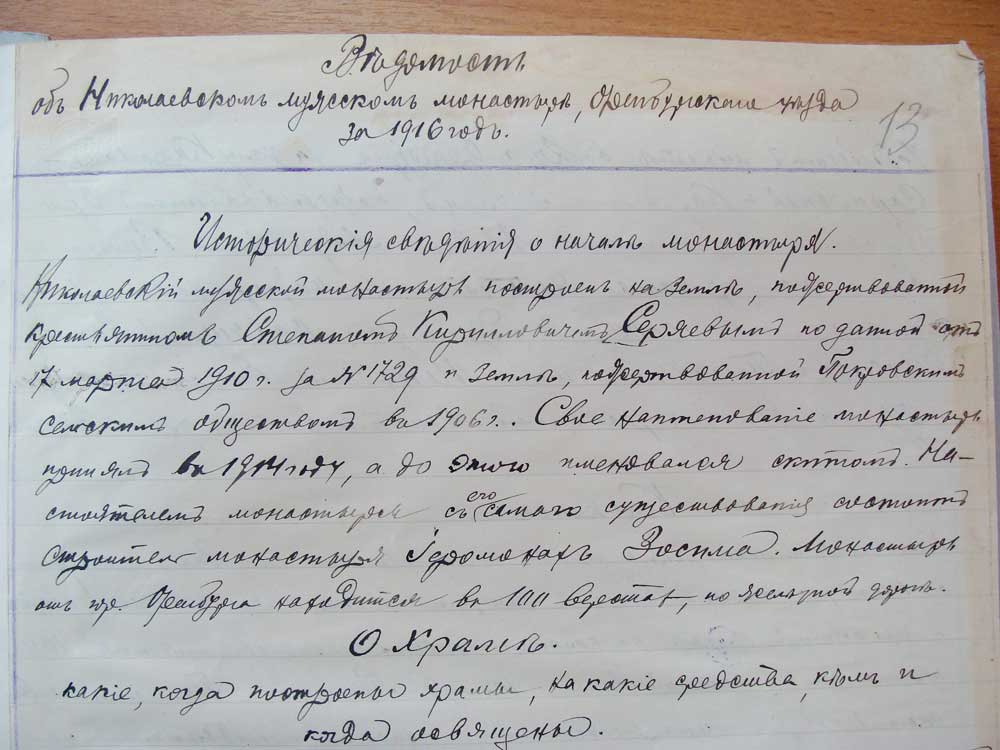 Вѣдомость
объ Николаевскомъ мужскомъ монастырѣ, Оренбургскаго уѣзда
за 1916 годъ.
13
Историческія свѣдѣнія о началѣ монастыря.
Николаевскій мужской монастырь построенъ на землѣ, пожертвованной
крестьяниномъ Степаномъ Кирилловичемъ Серяевымъ по данной отъ
17 марта 1910 г. за № 1729 и землѣ, пожертвованной Покровскимъ
сельскимъ обществомъ въ 1906 г. Свое наименованіе монастырь
принялъ въ 1914 году, а до этого именовался скитомъ. На-
стоятелемъ монастыря съ его самаго существованія состоитъ
строитель монастыря Іеромонахъ Зосима. Монастырь
отъ гор. Оренбурга находится въ 100 верстахъ, по желѣзной дорогѣ.
О Храмѣ.
какіе, когда построены храмы, на какіе средства, кѣмъ и
когда освящены.